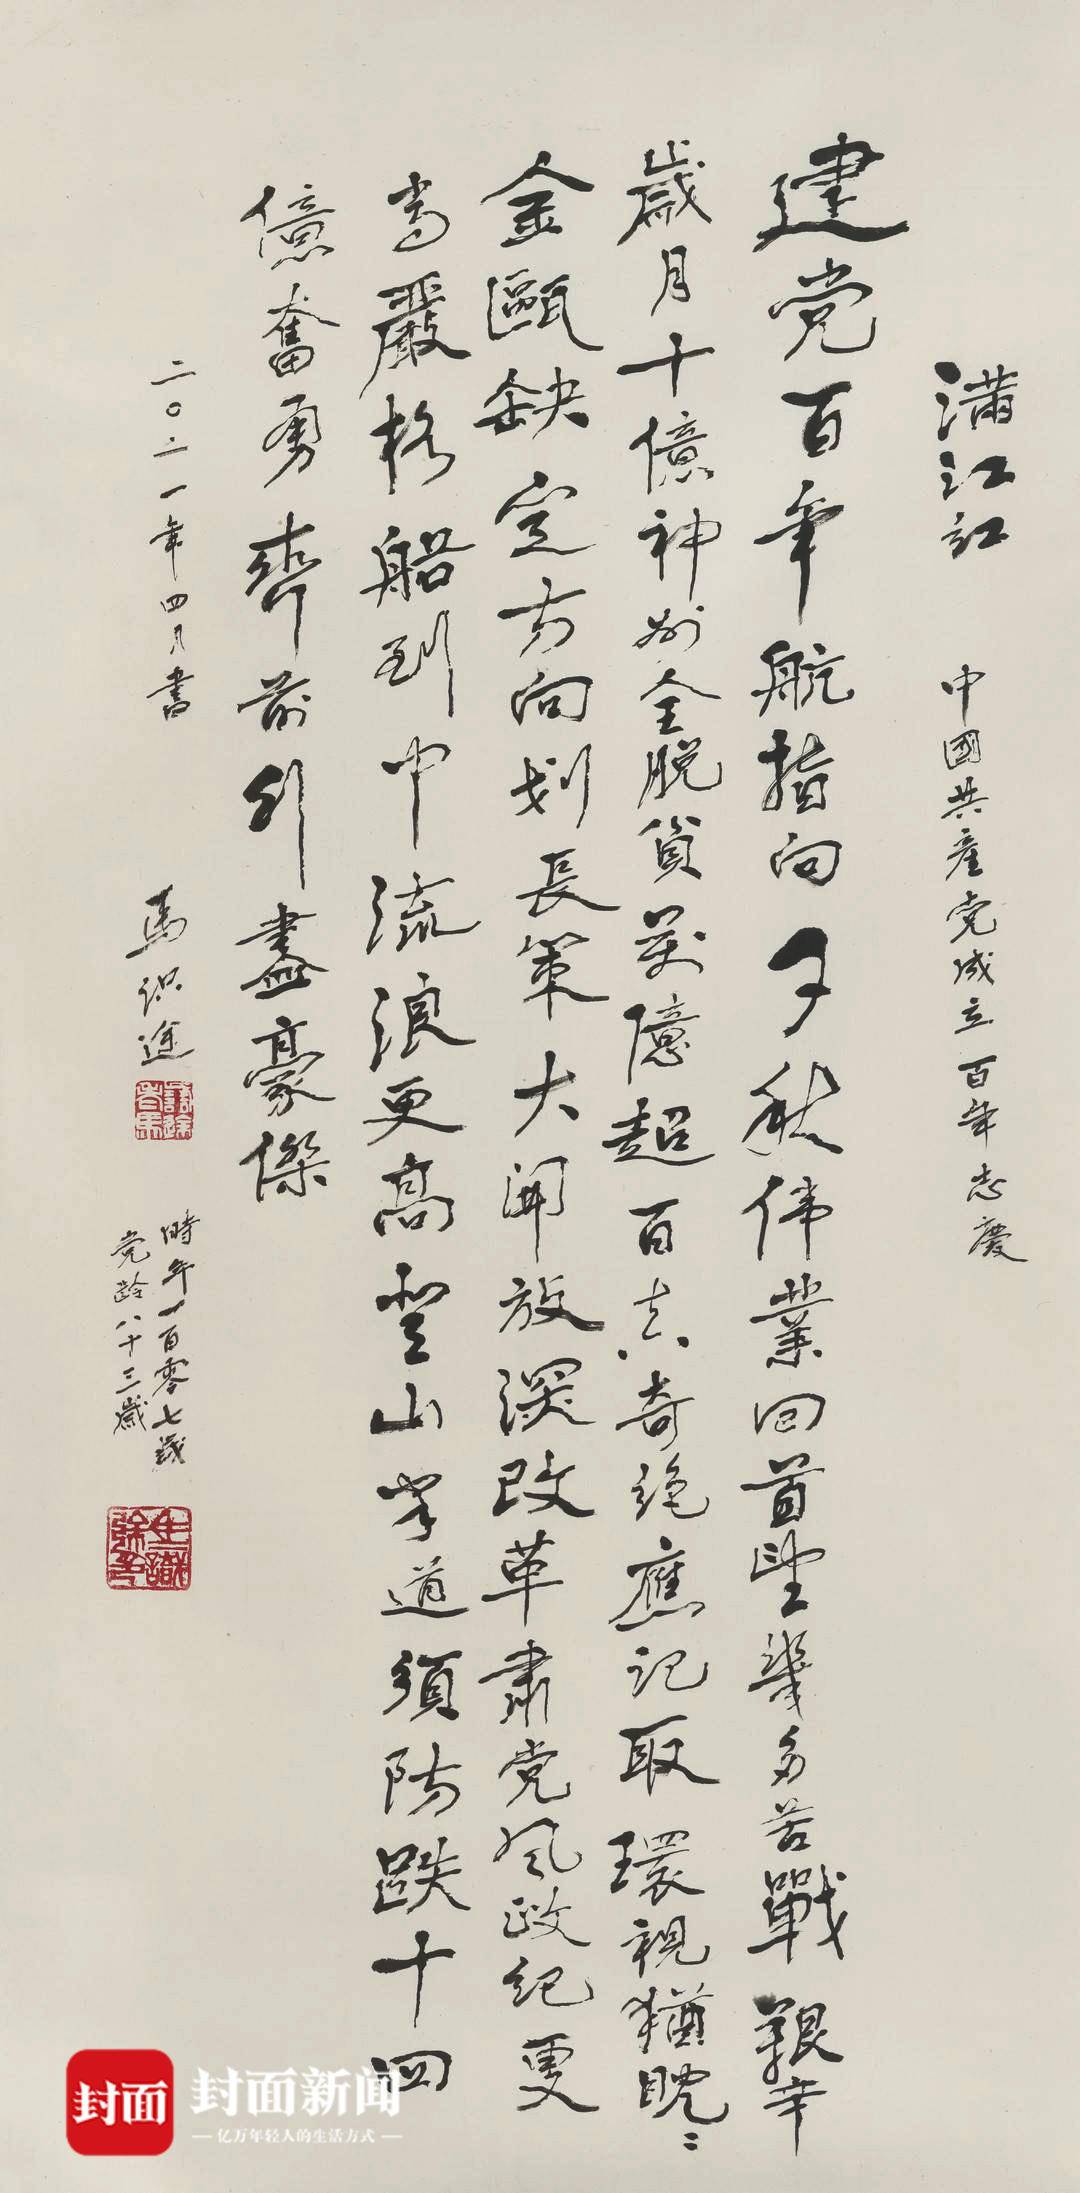 滿江紅 中國共產党成立百年志慶
建党百年航指向千秋偉業回首望幾多苦戰艱辛
歲月十億神州全脫貧萬億超百真奇絕應記取環視猶眈〻
金甌缺定方向划長策大開放深改革肅党風政紀更
當嚴格船到中流浪更高登山半道須防跌十四
億奮勇齊前行盡豪傑
二〇二一年四月書 馬識途
時年一百零七歲
党齡八十三歲
封面
封面新闻
亿万年轻人的生活方式